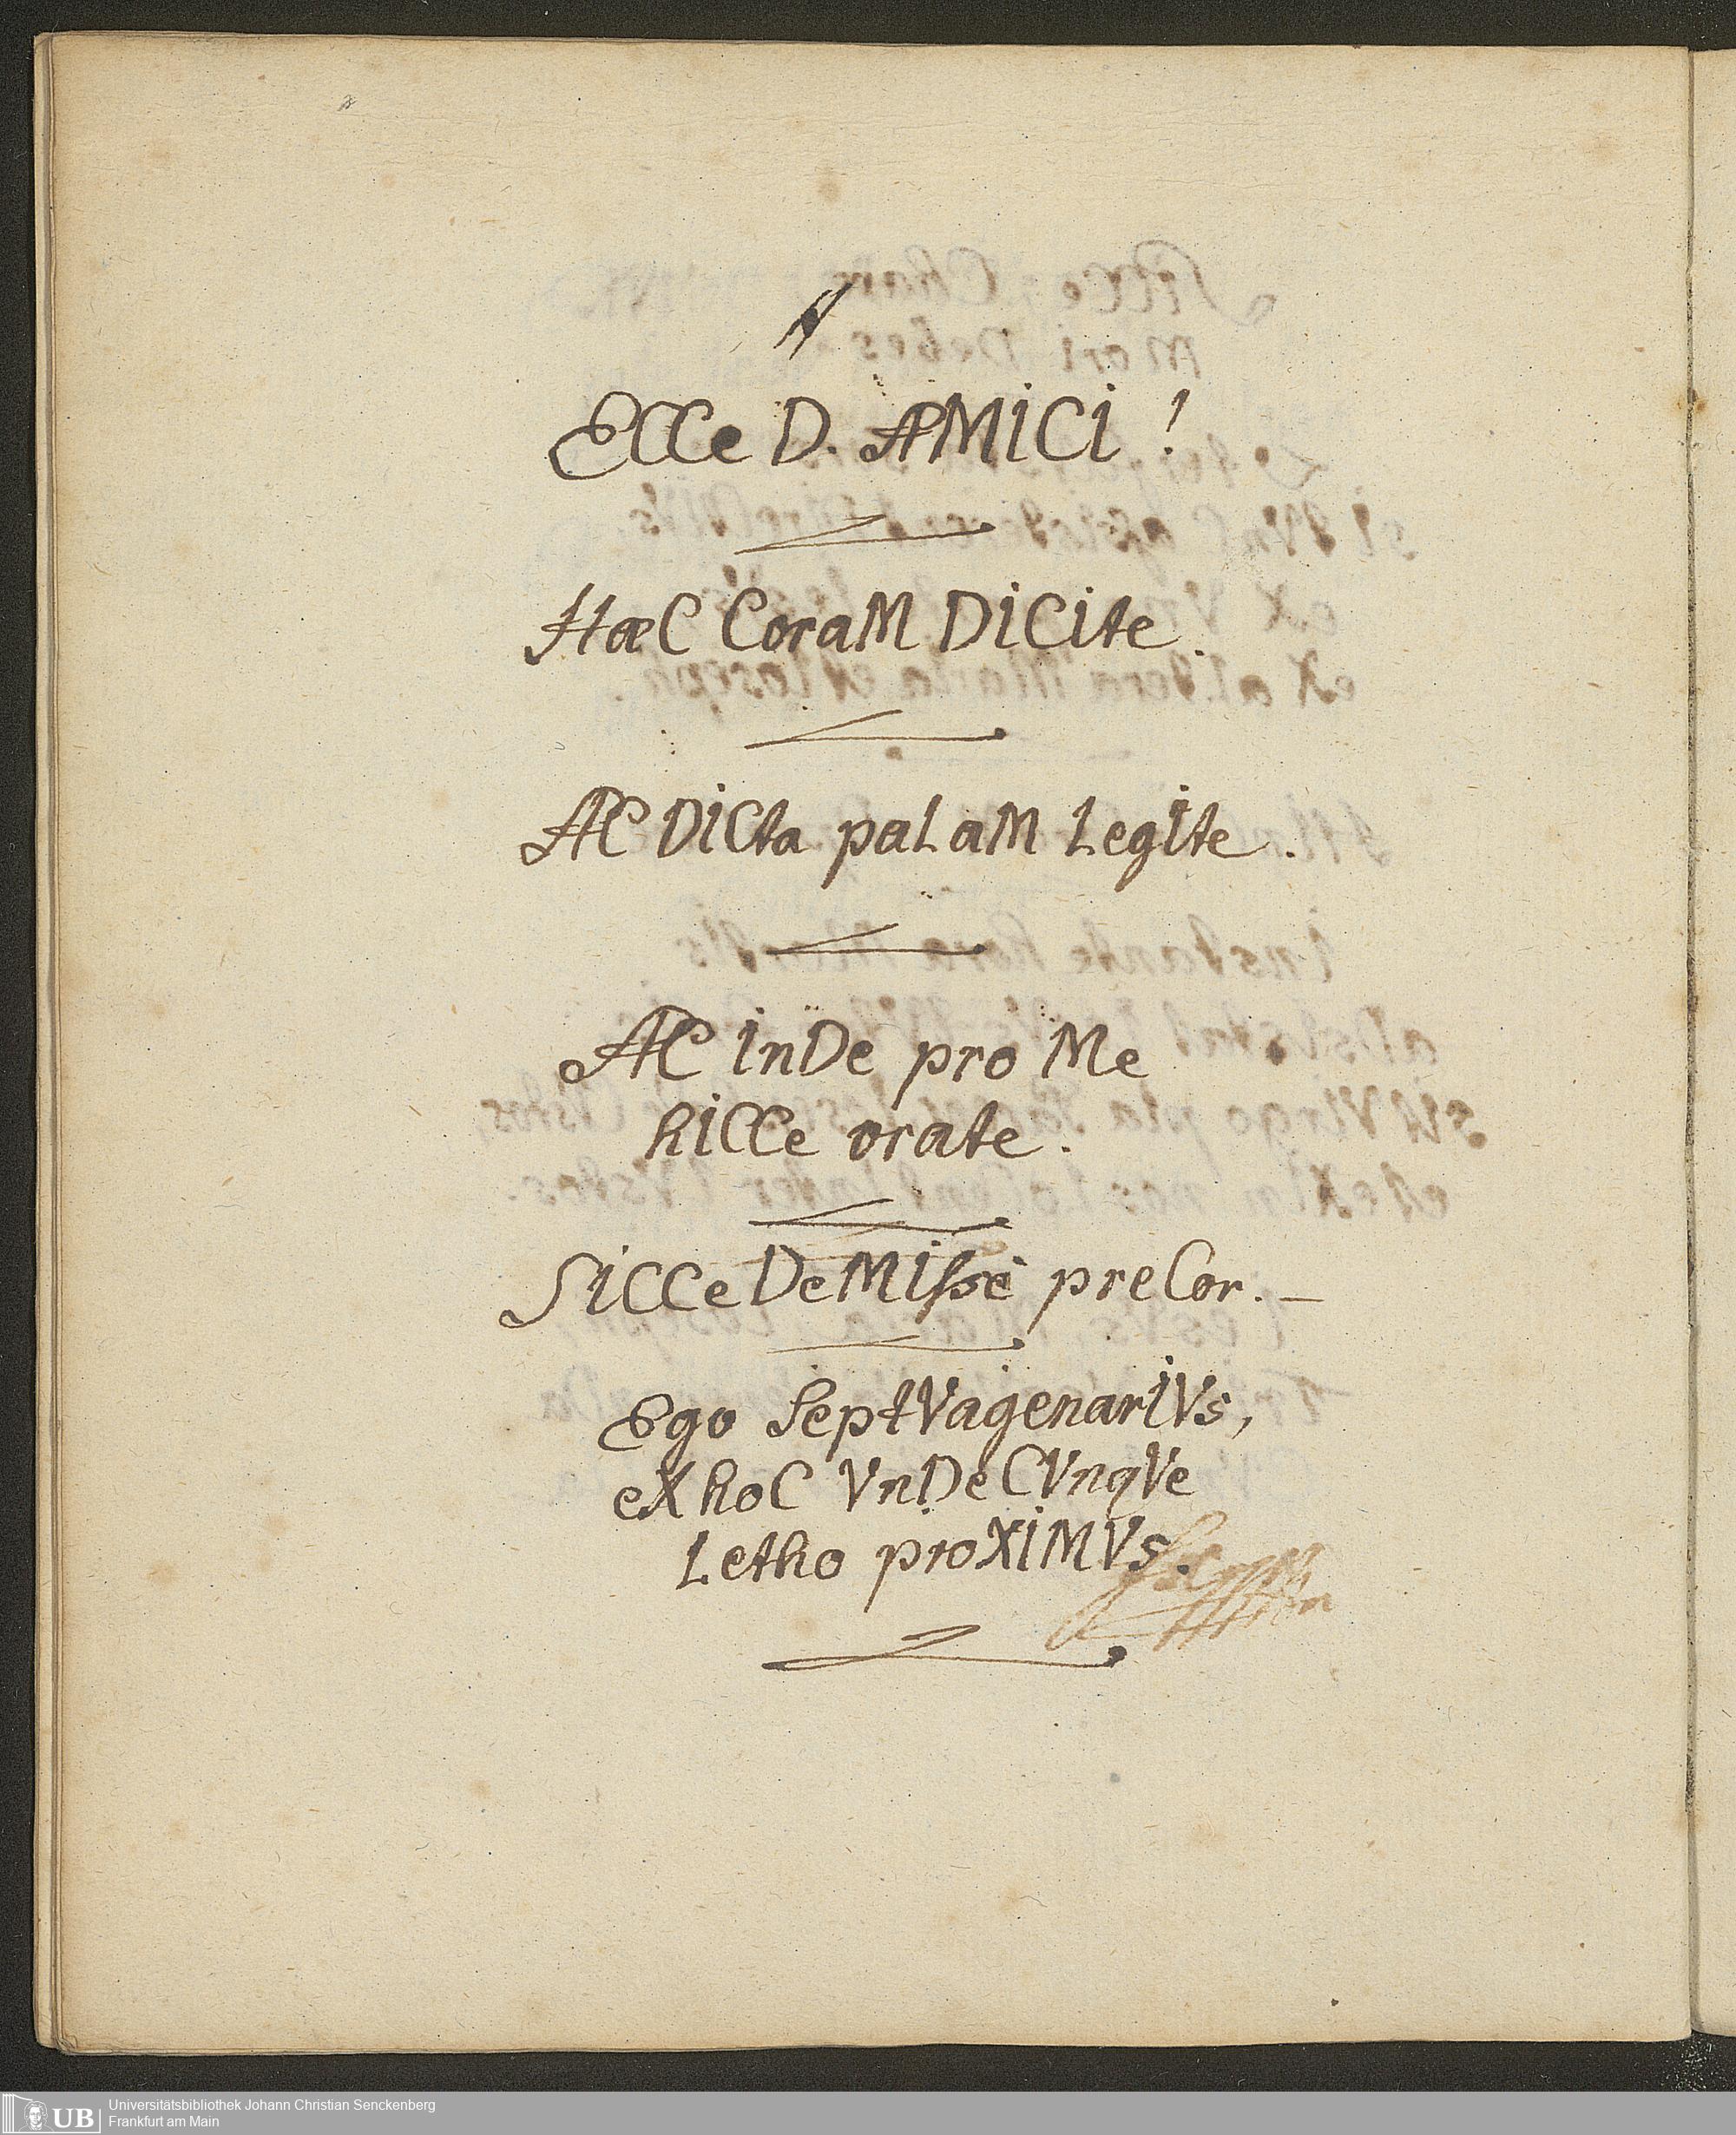 ECCe D. AMICI !
HæC CoraM DICIte.
AC DICta paLaM LegIte.
AC InDe pro Me
hICCe orate.
SICCe DeMIssè preCor. –
Ego SeptVagenarIVs,
eX hoC VnDeCVnqVe
Letho proXIMVs.
UB
Universitätsbibliothek Johann Christian Senckenberg
Frankfurt am Main